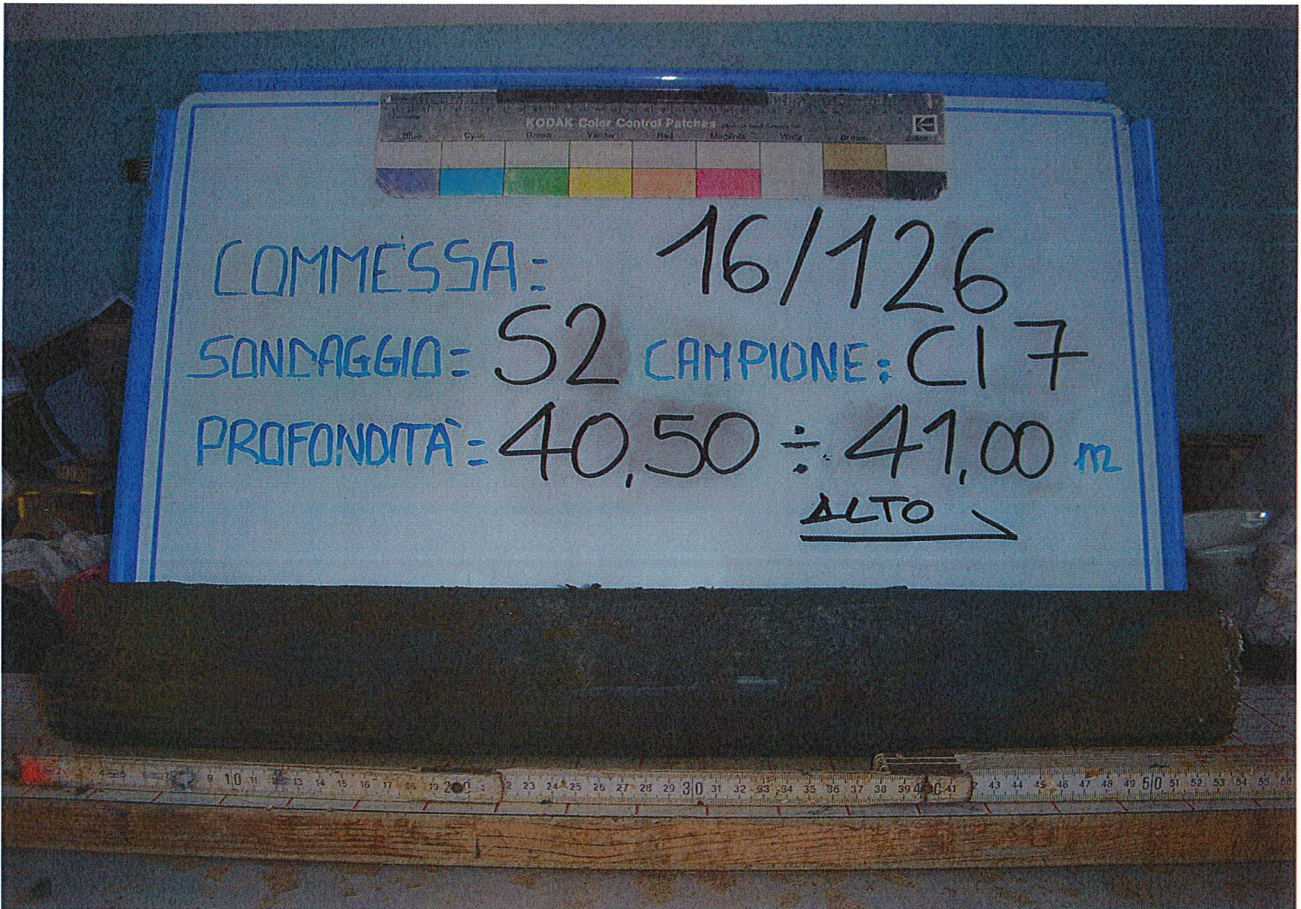 KODAK Color Control Patches
Blue Cyan Green Yellow Red Magenta White Brown
COMMESSA: 16/126
SONDAGGIO: S2 CAMPIONE: CI 7
PROFONDITÀ: 40,50 ÷ 41,00 m
ALTO
9 10 11 13 14 15 16 17 18 20 2 23 24 25 26 27 28 29 30 31 32 33 34 35 36 37 38 39 40 41 2 43 44 45 46 47 48 49 50 51 52 53 54 55